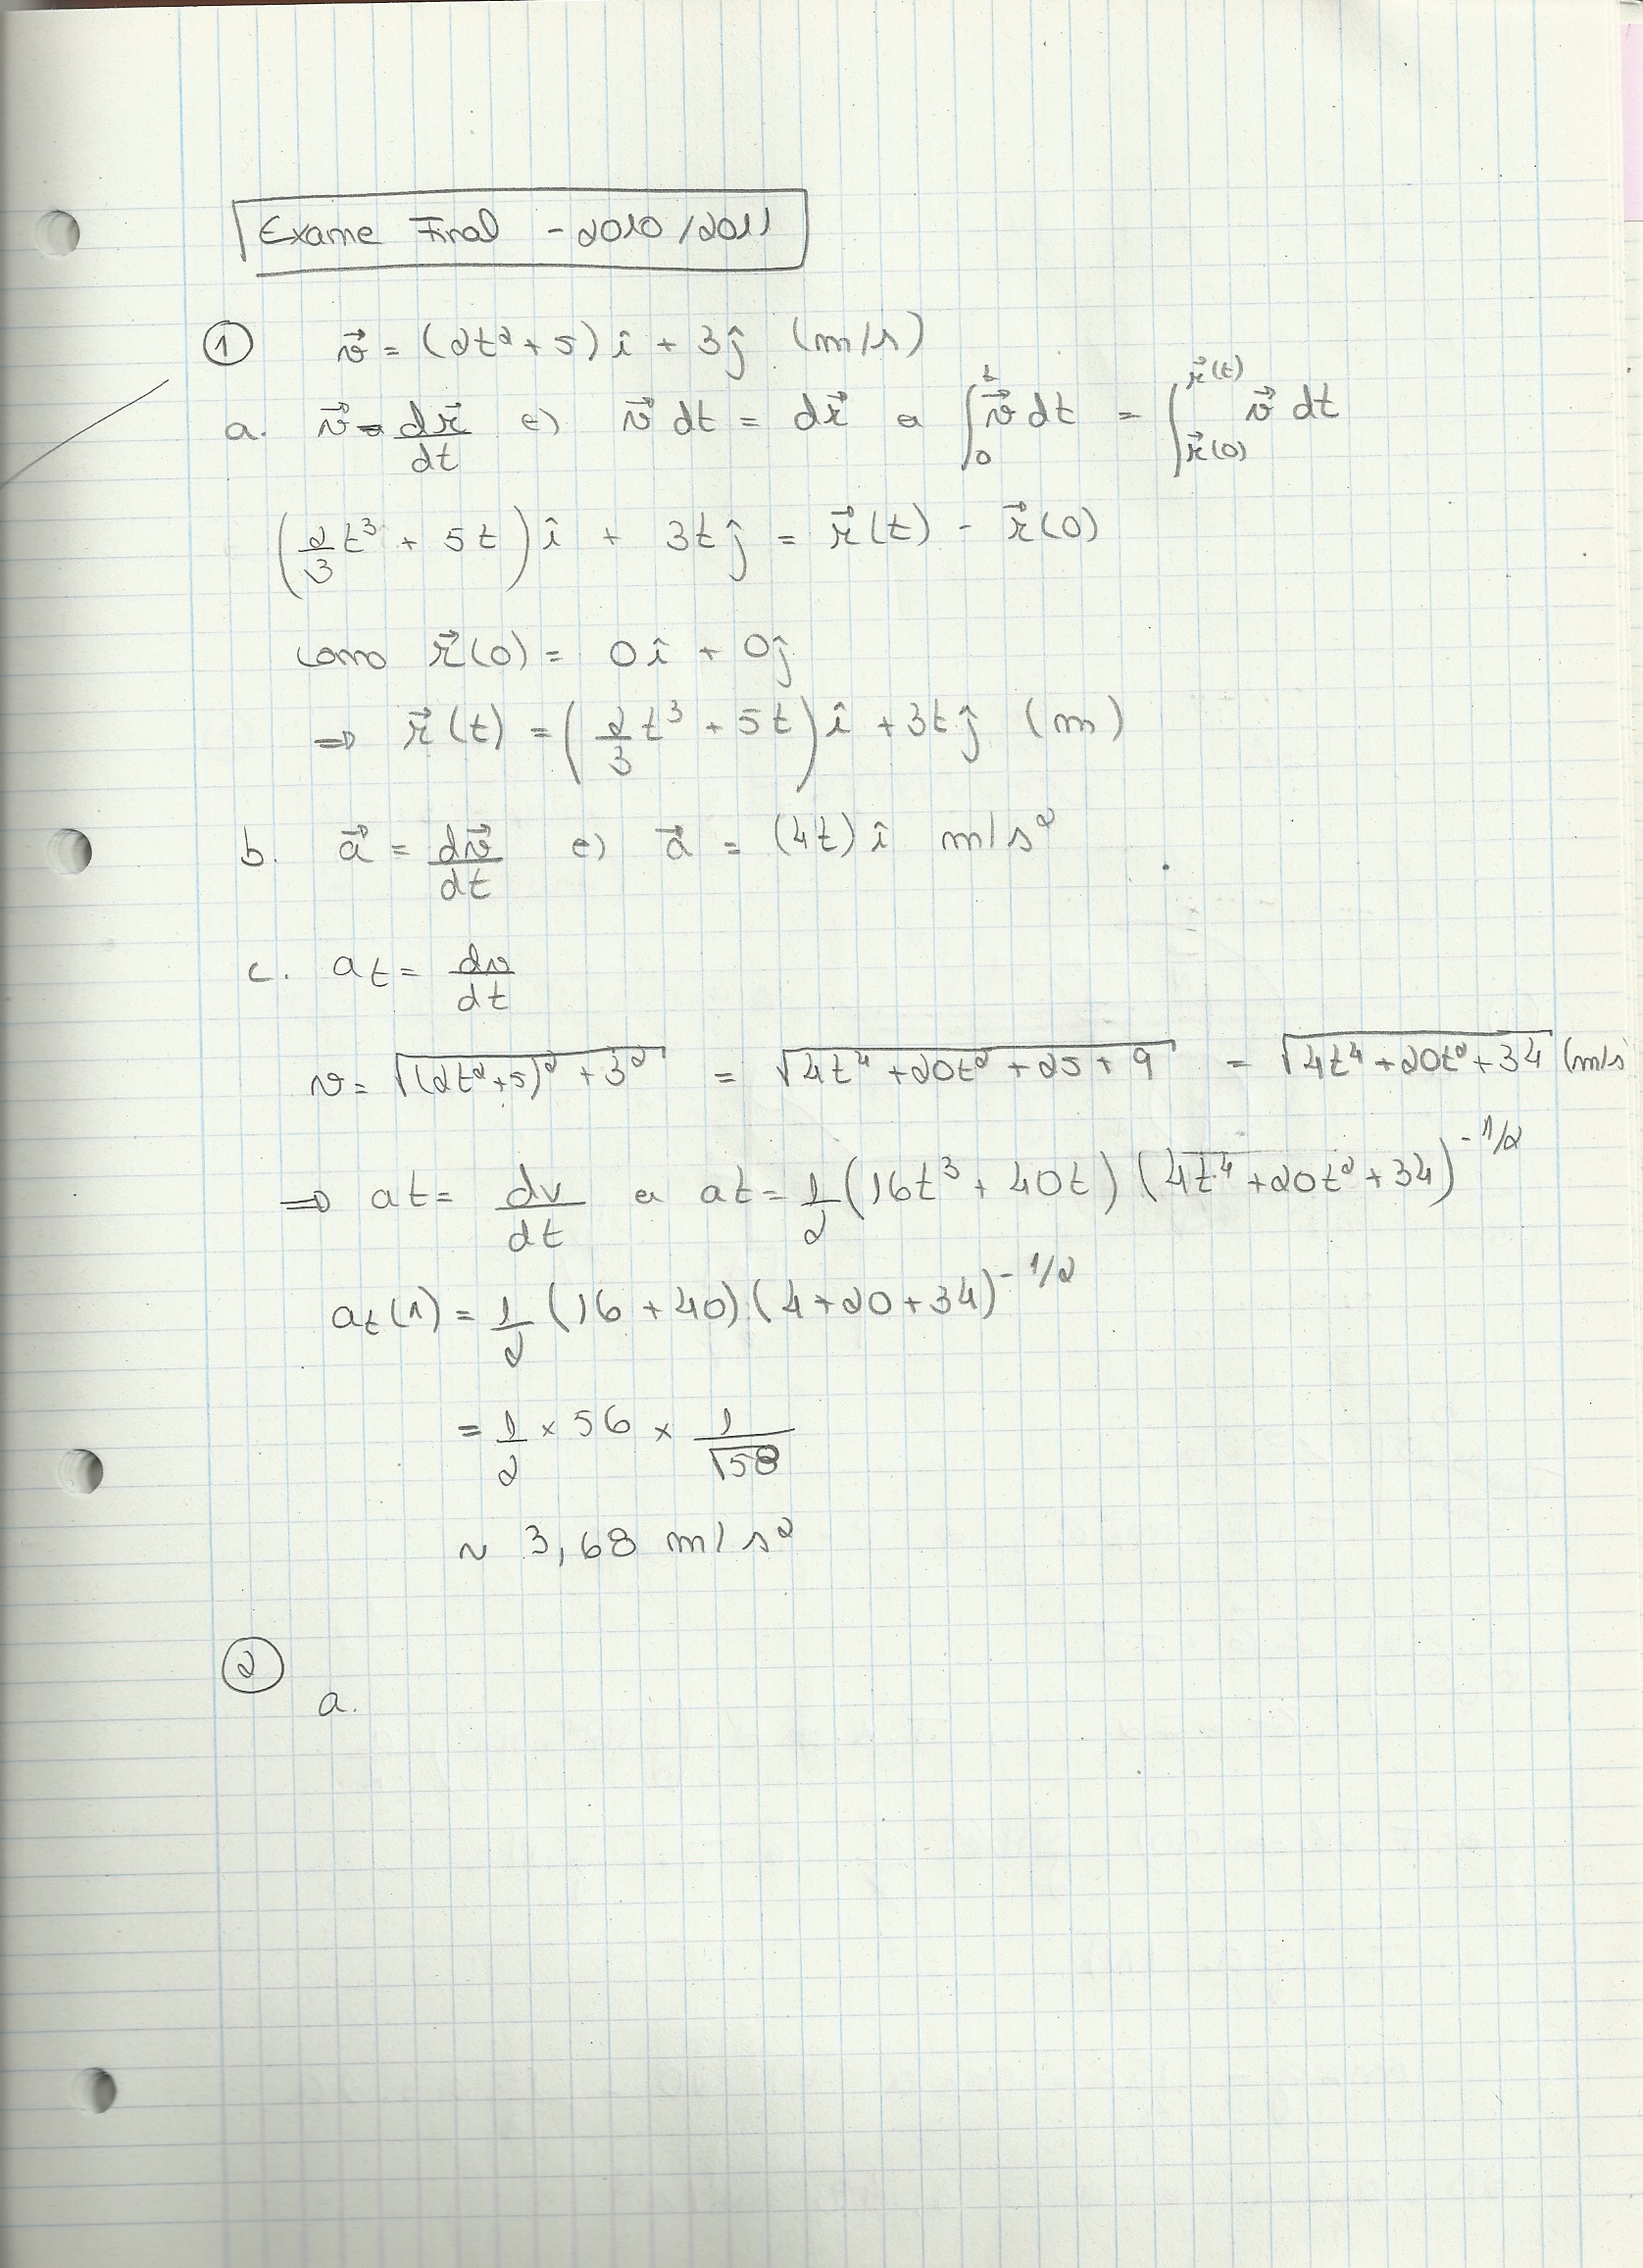 Exame Final - 2010/2011
① v⃗ = (2t²+5) î + 3ĵ (m/s)
a. v⃗ = dr⃗/dt (=) v⃗ dt = dr⃗ (=) ∫₀ᵗ v⃗ dt = ∫_{r⃗(0)}^{r⃗(t)} v⃗ dt
(2/3 t³ + 5t) î + 3t ĵ = r⃗(t) - r⃗(0)
como r⃗(0) = 0î + 0ĵ
⇒ r⃗(t) = (2/3 t³ + 5t) î + 3t ĵ (m)
b. a⃗ = dv⃗/dt (=) a⃗ = (4t) î m/s²
c. at = dv/dt
v = √((2t²+5)² + 3²) = √(4t⁴ + 20t² + 25 + 9) = √(4t⁴ + 20t² + 34) (m/s)
⇒ at = dv/dt (=) at = 1/2 (16t³ + 40t) (4t⁴ + 20t² + 34)^(-1/2)
at(1) = 1/2 (16 + 40) (4 + 20 + 34)^(-1/2)
= 1/2 × 56 × 1/√58
~ 3,68 m/s²
②
a.